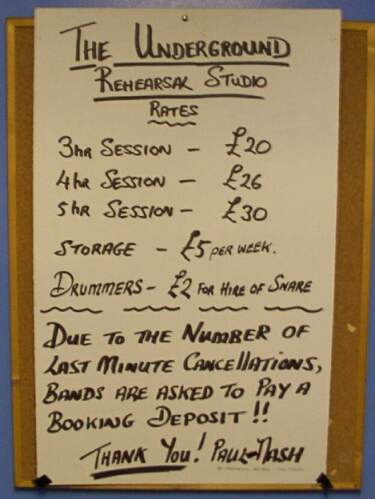 THE UNDERGROUND
REHEARSAL STUDIO
RATES
3hr SESSION - £20
4hr SESSION - £26
5hr SESSION - £30
STORAGE - £5 PER WEEK.
DRUMMERS - £2 FOR HIRE OF SNARE
DUE TO THE NUMBER OF
LAST MINUTE CANCELLATIONS,
BANDS ARE ASKED TO PAY A
BOOKING DEPOSIT!!
THANK YOU! PAUL-NASH